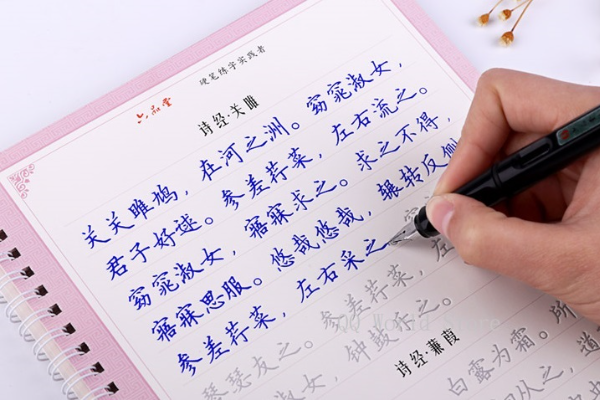 六品堂 硬笔练字实践者
诗经·关雎
关关雎鸠，在河之洲。窈窕淑女，
君子好逑。参差荇菜，左右流之。
窈窕淑女，寤寐求之。求之不得，
寤寐思服。悠哉悠哉，辗转反侧
参差荇菜，左右采之
琴瑟友之。参差荇菜，左
淑女，钟鼓乐之。
诗经·蒹葭
白露为霜。所
洄从之，道